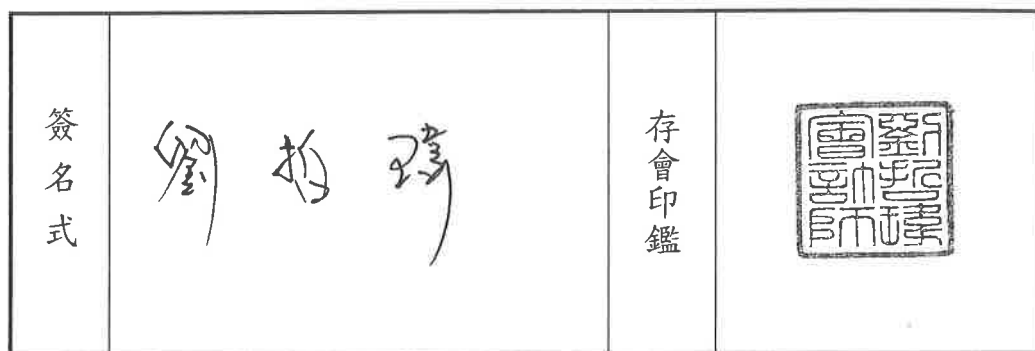 簽名式
劉哲瑋
存會印鑑
劉哲瑋
會計師